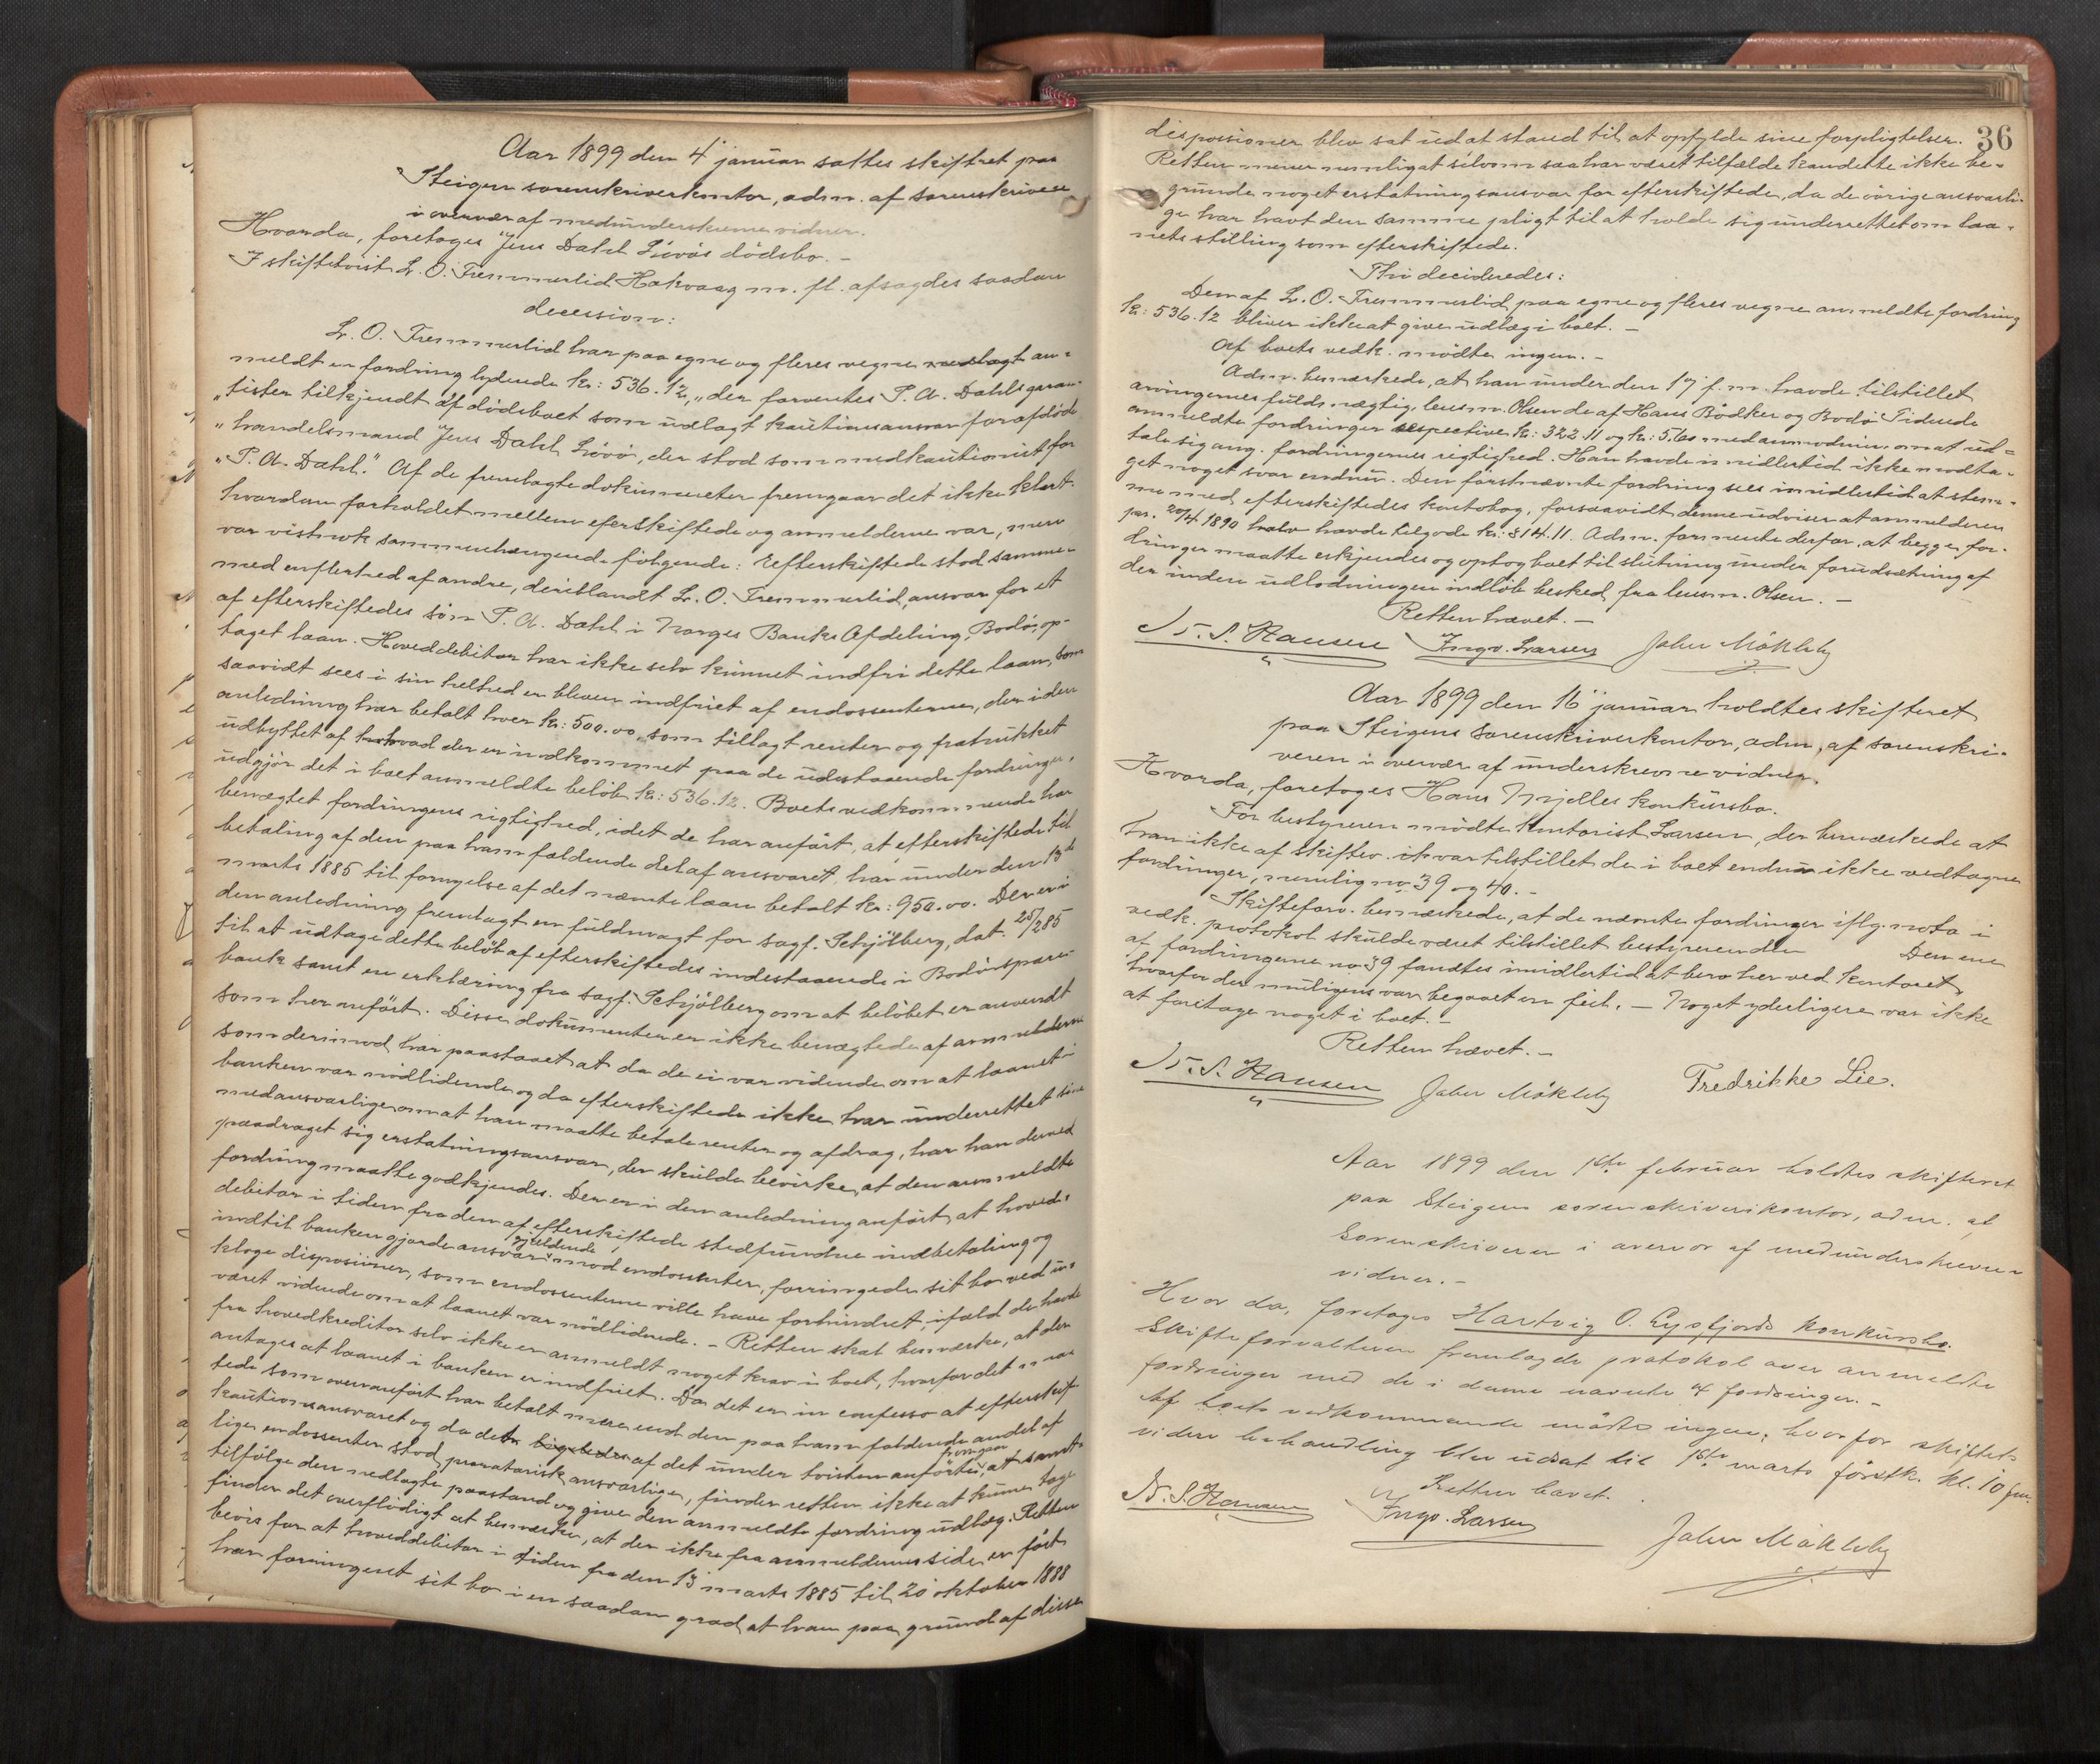 Aar 1899 den 4 januar sattes skiftret paa
Steigen sorenskriverkontor, adm. af sorenskriveren
i overvær af medunderskrevne vidner.
Hvorda, foretoges Jens Dahl Lövös dödsbo. -
I skiftetvist L. O. Tremmerlid Hakvaag m. fl. afsagdes saadan
decission:
L. O. Tremmerlid har paa egne og fleres vegne an=
meldt en fordring lydende kr: 536.12, „der forventes P. A. Dahls garan-
„tister tilkjendt af dödsboet som udlagt kautionsansvar for afdöde
„handelsmand Jens Dahl Lövö, der stod som medkautionist for
„P. A. Dahl.” Af de fremlagte dokumenter fremgaar det ikke klart
hvordan forholdet mellem efterskiftede og anmelderne var, men
var vistnok sammenhængende fölgende: Efterskiftede stod samme-
med en flerhed af andre, deriblandt L. O. Tremmerlid, ansvar for et
af efterskiftedes sön P. A. Dahl i Norges Banks Afdeling, Bodö, op-
taget laan. Hoveddebitor har ikke selv kunnet indfri dette laan, som
saavidt sees i sin helhed er bleven indfriet af endossenterne, der i den
anledning har betalt hver kr: 500.00, som tillagt renter og fratrukket
udbyttet af hvad der er indkommet paa de udestaaende fordringer,
udgjör det i boet anmeldte belöb kr: 536.12. Boets vedkommende har
benægtet fordringens rigtighed, idet de har anfört, at efterskiftede til
betaling af den paa ham faldende del af ansvaret, har under den 13de
marts 1885 til fornyelse af det nævnte laan betalt kr: 950.00. Der er i
den anledning fremlagt en fuldmagt for sagf. Schjölberg, dat. 25/2 85
til at udtage dette belöb af efterskiftedes indestaaende i Bodö spare-
bank samt en erklæring fra sagf. Schjölberg om at belöbet er anvendt
som her anfört. Disse dokumenter er ikke benægtede af anmelderne
som derimod har paastaaet at da de ei var vidende om at laanet i
banken var nödlidende og da efterskiftede ikke har underrettet sine
medansvarlige om at han maatte betale renter og afdrag, har han derved
paadraget sig erstatningsansvar, der skulde bevirke, at den anmeldte
fordring maatte godkjendes. Der er i den anledning anfört, at hoved-
debitor i tiden fra den af efterskiftede stedfundne indbetaling og
indtil banken gjorde ansvar gjældende mod endossenter, forringede sit bo ved u-
kloge disposisioner, som endossenterne ville have forhindret, ifald de havde
været vidende om at laanet var nödlidende. - Retten skal bemærke, at der
fra hovedkreditor selv ikke er anmeldt noget krav i boet, hvorfor det maa
antages at laanet i banken er indfriet. Da det er in confesso at efterskif-
tede som ovenanfört har betalt mere end den paa ham faldende andel af
kautionsansvaret og da det af det under tvisten anförte fremgaar, at samt-
lige endossenter stod proratarisk ansvarlige, finder retten ikke at kunne tage
tilfölge den nedlagte paastand og give den anmeldte fordring udlæg. Retten
finder det overflödigt at bemærke, at der ikke fra anmeldernes side er fört
bevis for at hoveddebitor i tiden fra den 13 marts 1885 til 20 oktober 1888
har forringet sit bo i en saadan grad at han paa grund af disse
36
disposioner blev sat ud at stand til at opfylde sine forpligtelser.
Retten mener nemlig at selvom saa har været tilfælde kan dette ikke be-
grunde noget erstatningsansvar for efterskiftede, da de övrige ansvarli-
ge har havt den samme pligt til at holde sig underrettet om laa-
nets stilling som efterskiftede.
Thi decideredes:
Den af L. O. Tremmerlid paa egne og fleres vegne anmeldte fordring
kr: 536.12 bliver ikke at give udlæg i boet. -
Af boets vedk. mödte ingen. -
Adm. bemærkede, at han under den 17 f. m. havde tilstillet
arvingernes fuldmægtig, lensm. Olsen de af Hans Bödker og Bodö Tidende
anmeldte fordringer respective kr: 322.11 og kr: 5.60 med anmodning om at ud=
tale sig ang. fordringernes rigtighed. Han havde imidlertid ikke modta-
get noget svar endnu. Den förstnævnte fordring sees imidlertid at stem-
me med efterskiftedes kontobog, forsaavidt denne udviser at anmelderen
pr. 20/4 1890 havde tilgode kr: 814.11. Adm. formente derfor, at begge for-
dringer maatte erkjendes og optog boet til slutning under forudsætning af
der inden udlodningen indlöb besked fra lensm. Olsen. -
Retten hævet. -
N. S. Hansen Ingv. Larsen Johr Mökleby
Aar 1899 den 16 januar holdtes skifteret
paa Steigens sorenskriverkontor, adm. af sorenskri-
veren i overvær af underskrevne vidner.
Hvorda, foretoges Hans Mjelles konkursbo.
For bestyreren mödte kontorist Larsen, der bemærkede at
han ikke af skiftev. ih var tilstillet de i boet endnu ikke vedtagne
fordringer, nemlig no 39 og 40. -
Skifteforv. bemærkede, at de nævnte fordringer iflg. nota i
vedk. protokol skulde været tilstillet bestyreren den Den ene
af fordringerne no 39 fandtes imidlertid at bero her ved kontoret,
hvorfor der muligens var begaaet en feil. - Noget yderligere var ikke
at foretage noget i boet. -
Retten hævet. -
N. S. Hansen Johr Mökleby Fredrikke Lie.
Aar 1899 den 1ste februar holdtes skifteret
paa Steigens sorenskriverikontor, adm. af
Sorenskriveren i overvær af medunderskrevne
vidner. -
Hvor da, foretoges Hartvig O. Eysfjords Konkursbo.
Skifteforvalteren fremlagde protokol over anmeldte
fordringer med de i denne nævnte 4 fordringer. -
Af boets vedkommende mödte ingen, hvorfor skiftets
videre behandling blev udsat til 1ste marts förstk. kl. 10 fm.
Retten hævet.
N. S. Hansen Ingv. Larsen
Johr Mökleby